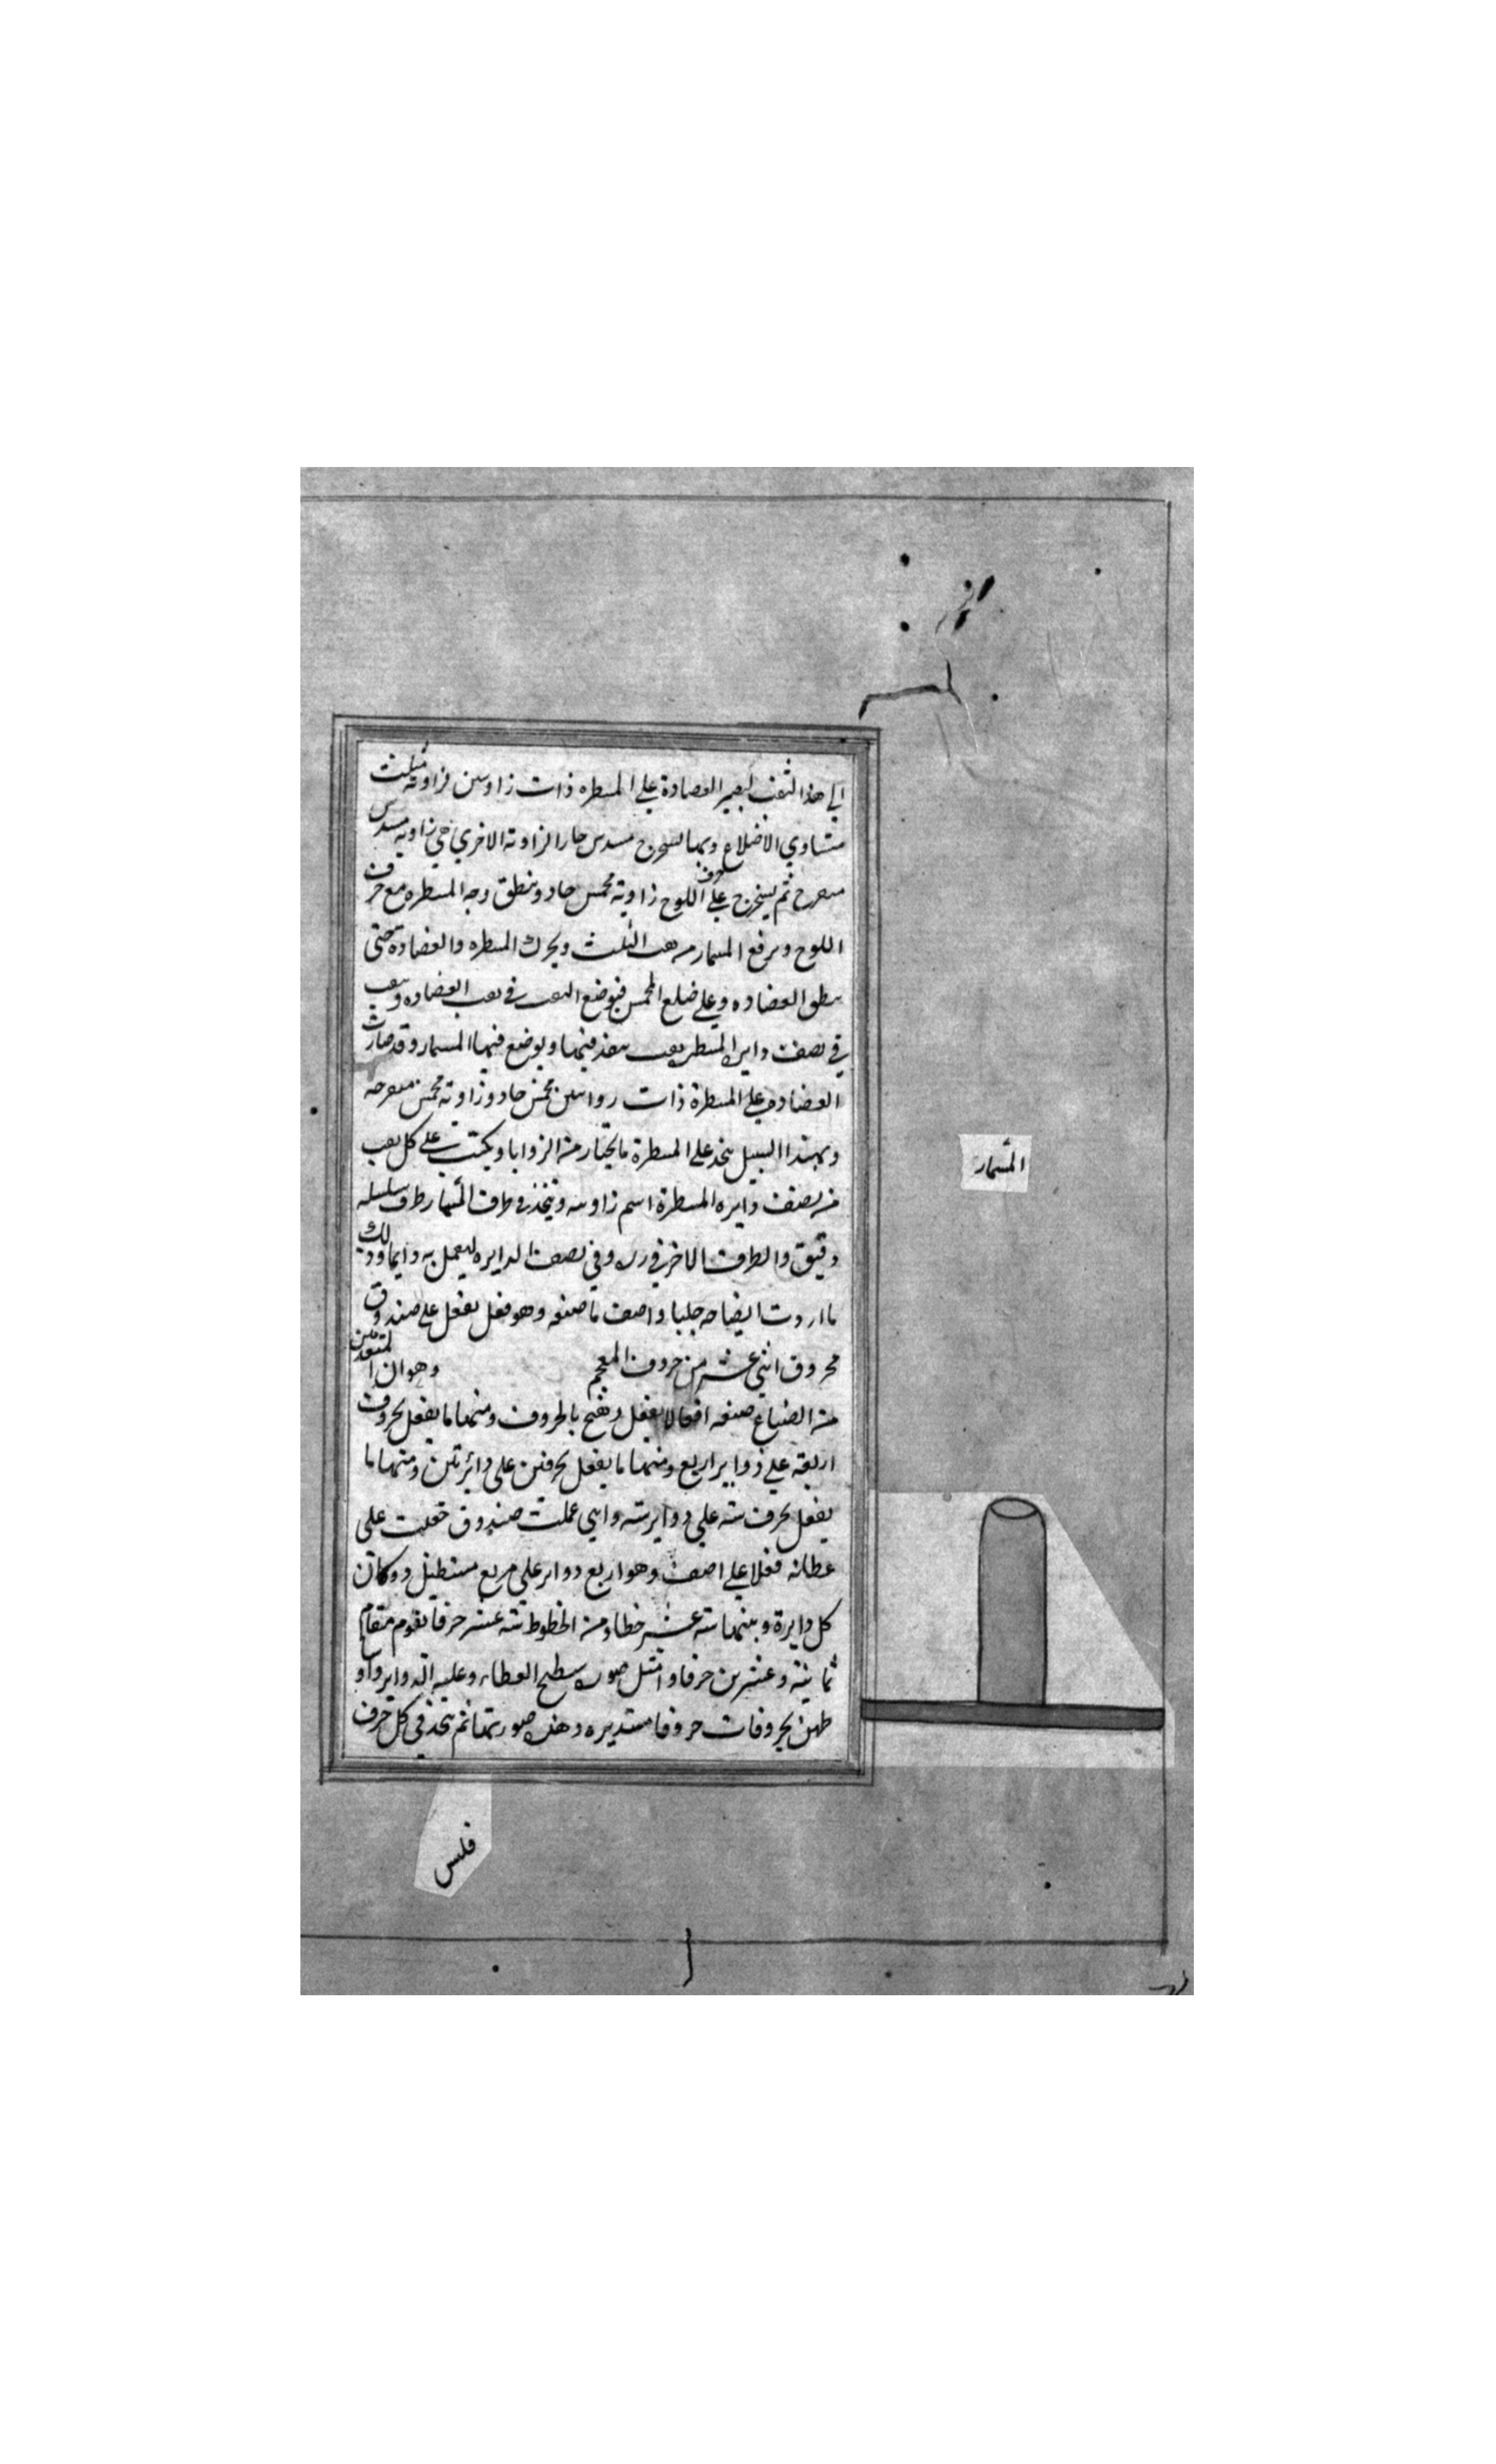 الي هذا الثقب لتصير العضادة علي المسطره ذات زاوسين فزاوية مثلث
متساوي الاضلاع وبها لسحرج مسدس حار الزاوية الاخري هي زاوية مسدس
منفرج ثم يستخرج علي حرف اللوح زاوية مخمس حاد وينطق وجه المسطره مع حرف
اللوح ويرفع المسمار من هب الثلث ويحرك المسطره والعضادة حتى
ينطق العضاده وعلي ضلع المخمس فيوضع النقب في نقب العضاده ونيقب
في نصف دايرة المسطر نقب ينفذ فيها ويوضع فيها المسمار وقد صارت
العضادة علي المسطرة ذات رواسن مخمس حاد وزاوية مخمس منفرجه
وبهذا السبيل يتخذ على المسطرة ما يختار من الزوايا ويكتب علي كل نقب
من نصف دايره المسطرة اسم زاوسه ويتخذ في طرف المسمار طرف سلسله
دقيق والطرف الاخر في رزه وفي نصف الدايره ليعمل به دايما وذلك
ما اردت ايضاحه جليا واصف ما صنعه وهو قفل يقفل علي صندوق
محروق اثني عشر من حروف المعجم وهو ان المتقدمين
من الصناع صنعه اقفالا يقفل ويفتح بالحروف ومنها ما يقفل بحروف
اربعة علي دواير اربع ومنها ما يقفل بحرفين على دائرتين ومنها ما
يقفل بحرف سته علي دواير سته واني عملت صندوق جعلت على
عطائه قفلا علي اصف وهو اربع دواير علي مربع مستطيل دوكان
كل دايرة وبينها سته عشر خطا ومن الخطوط ستة عشر حرفا يقوم مقام
ثمانية وعشرين حرفا وامثل صوره سطح العطاء وعليه الدواير واو
طهن بحروفات حروفا مستديره وهذه صورتها ثم يتخذ في كل حرف
المسمار
فلس